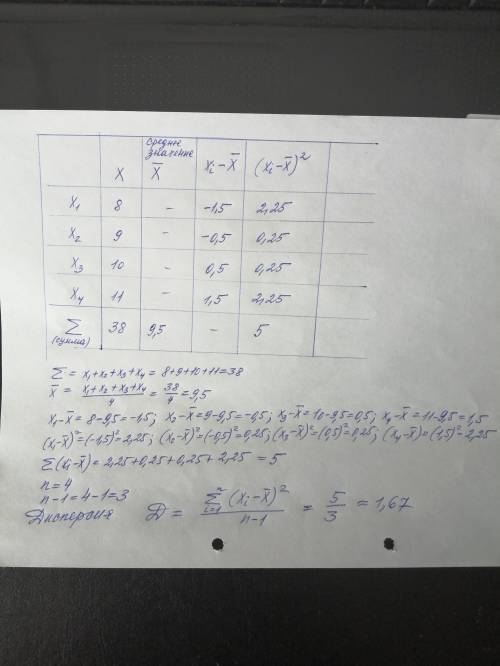 X среднее значение X̅ xᵢ-X̅ (xᵢ-X̅)²
X₁ 8 - -1,5 2,25
X₂ 9 - -0,5 0,25
X₃ 10 - 0,5 0,25
X₄ 11 - 1,5 2,25
Σ (сумма) 38 9,5 - 5
Σ = x₁+x₂+x₃+x₄ = 8+9+10+11=38
X̅ = (x₁+x₂+x₃+x₄)/4 = 38/4 = 9,5
x₁-X̅=8-9,5=-1,5; x₂-X̅=9-9,5=-0,5; x₃-X̅=10-9,5=0,5; x₄-X̅=11-9,5=1,5
(x₁-X̅)²=(-1,5)²=2,25; (x₂-X̅)²=(-0,5)²=0,25; (x₃-X̅)²=(0,5)²=0,25; (x₄-X̅)²=(1,5)²=2,25
Σ(xᵢ-X̅)=2,25+0,25+0,25+2,25 = 5
n=4
n-1=4-1=3
Дисперсия D = Σⁿᵢ₌₁(xᵢ-x̅)²/(n-1) = 5/3 ≈ 1,67